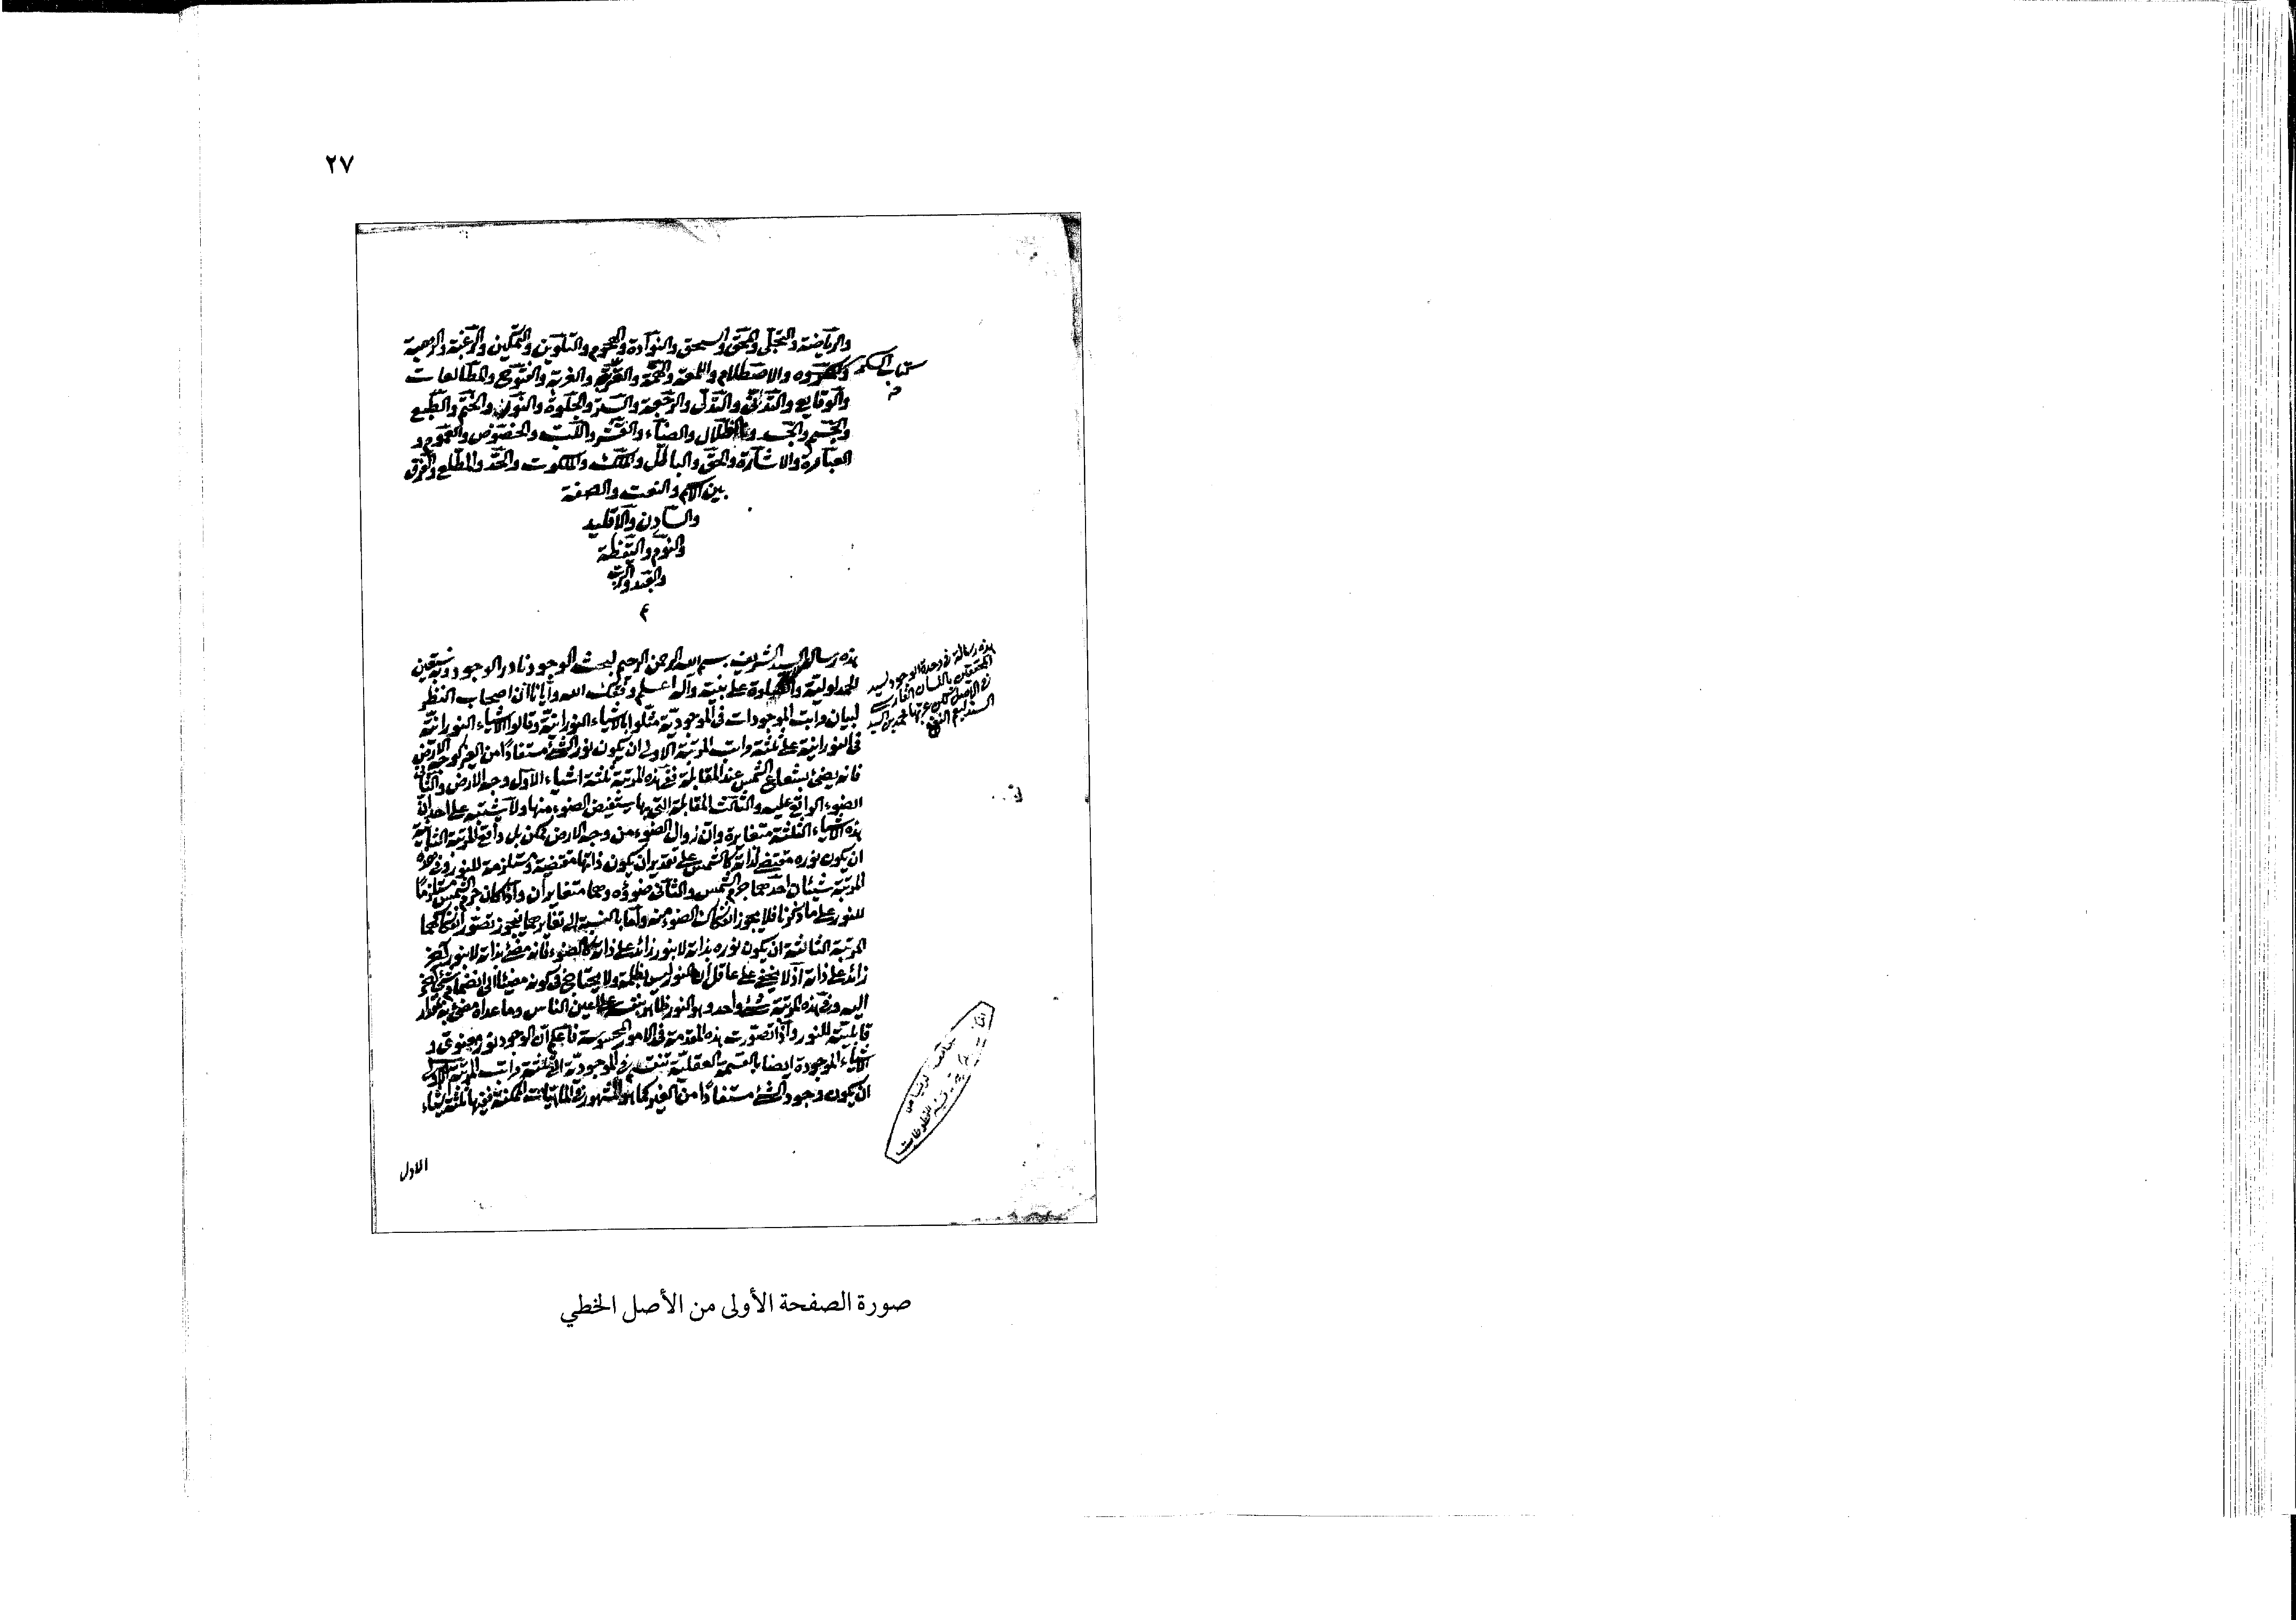 ٢٧
والرياضة والتجلى والمحق والسحق والنوادة والهجوم والتلوين والتمكين والرغبة والرهبة
والمكروه والاصطلام واللمعة والهمة والغربة والفتوح والمطالعات
والوقايع والتدانى والتدلى والرجعة والستر والجلوة والنون والختم والطبع
والجسم والجسد والظلال والضياء والقشر واللب والخصوص والعموم و
العبارة والاشارة والحق والباطل والملك والملكوت والحد والمطلع والفرق
بين الاسم والنعت والصفة
والسادن والاقليد
والنوم واليقظة
والعبد والرب
م
هذه رسالة السيد الشريف بسم الله الرحمن الرحيم لبحث الوجود نادر الوجود وبه نستعين
الحمد لوليه والصلوة على نبيه وآله اعلم وفقك الله وايانا ان اصحاب النظر
لبيان مراتب الموجودات فى الموجودية مثلوا بالاشياء النورانية وقالوا الاشياء النورانية
فى النورانية على ثلثة مراتب المرتبة الاولى ان يكون نور الشئ مستفادا من الغير كوجه الارض
فانه يضئ بشعاع الشمس عند المقابلة ففى هذه المرتبة ثلثة اشياء الاول وجه الارض والثانى
الضوء الواقع عليه والثالث المقابلة التى بها يستفيض الضوء منها ولا يشتبه على احد ان
هذه الاشياء الثلثة متغايرة وان زوال الضوء من وجه الارض ممكن بل واقع المرتبة الثانية
ان يكون نوره مقتضى لذاته كالشمس على تقدير ان يكون ذاتها مقتضية ومستلزمة للنور وفى هذه
المرتبة شيئان احدهما جرم الشمس والثانى ضوؤه وهما متغايران واذا كان جرم الشمس مستلزما
للنور على ما ذكرنا فلا يجوز انفكاك الضوء منه واما بالنسبة الى تغايرهما فيجوز تصور انفكاكهما
المرتبة الثالثة ان يكون نوره بذاته لا بنور زائد على ذاته كالضوء فانه مضئ بذاته لا بنور آخر
زائد على ذاته اذ لا يخفى على عاقل ان النور ليس بظلمة ولا يحتاج فى كونه مضيئا الى انضمام شئ آخر
اليه وفى هذه المرتبة شئ واحد وهو النور ظاهر بنفسه على اعين الناس وما عداه مضئ به بمقدار
قابليته للنور واذا تصورت هذه المقدمة فى الامور المحسوسة فاعلم ان الوجود نور معنوى و
الاشياء الموجودة ايضا بالقسمة العقلية تنقسم فى الموجودية الى ثلثة مراتب المرتبة الاولى
ان يكون وجود الشئ مستفادا من الغير كما هو المشهور فى الماهيات الممكنة ففيها ثلثة اشياء
الاول
هذه رسالة فى وحدة الوجود لسيد
المحققين باللسان الفارسى
فى الاصل لكن عربها محمد بن السيد
صورة الصفحة الأولى من الأصل الخطي